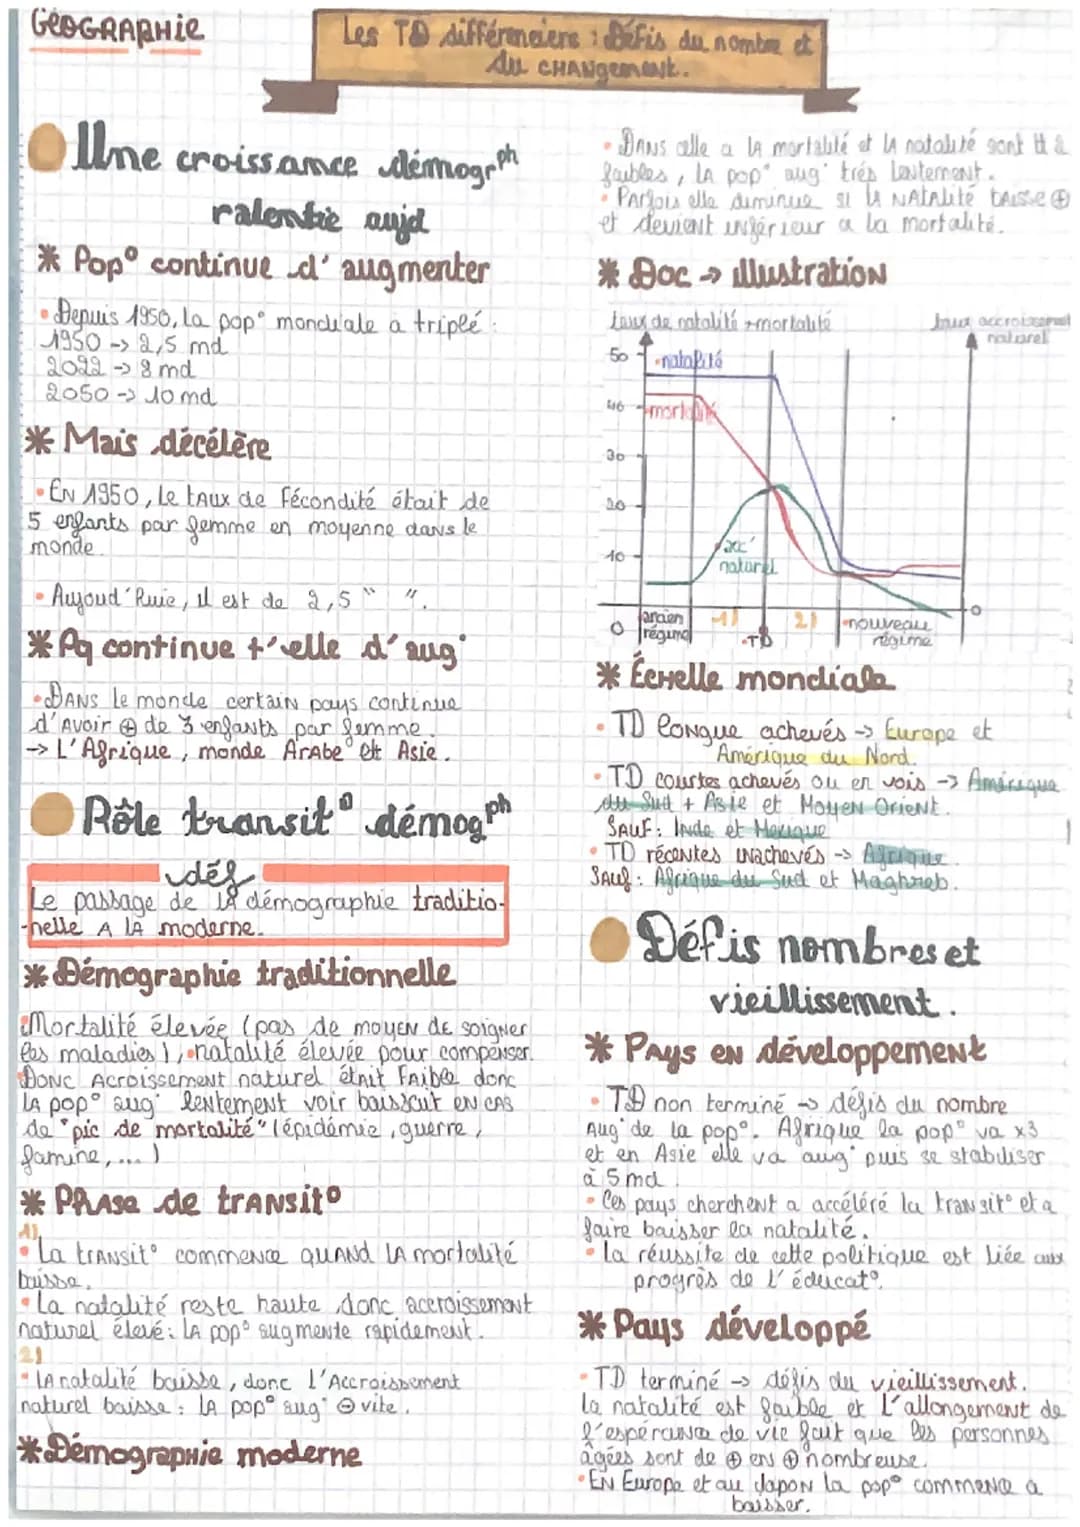 GÉOGRAPHIE
Les TD différenciers : Défis du nombre et
du CHANgement.
Une croissance démogrph
ralentie aujd
* Pop° continue d' augmenter
• Depuis 1950, la pop° mondiale a triplé :
1950 -> 2,5 md
2022 -> 8 md
2050 -> 10 md
* Mais décélère
• EN 1950, le tAux de fécondité était de
5 enfants par femme en moyenne dans le
monde.
• Aujoud'huie, il est de 2,5 " ".
* Pq continue t'elle d' aug°
• DANS le monde certain pays continue
d'Avoir ⊕ de 3 enfants par femme.
-> L'Afrique, monde ArAbe et Asie.
Rôle transit° démogph
déf
Le passage de lA démographie traditio-
-nelle A lA moderne.
* Démographie traditionnelle
• Mortalité élevée (pas de moyen de soigner
les maladies), • natalité élevée pour compenser.
DONC Acroissement naturel était faible donc
lA pop° aug° lentement voir baissait en cAs
de "pic de mortalité" (épidémie, guerre,
famine, ... )
* PhAse de trANsit°
1)
• La trANsit° commence quAND lA mortalité
baisse.
• La natalité reste haute, donc accroissement
naturel élevé : lA pop° augmente rapidement.
2)
• lA natalité baisse, donc l'Accroissement
naturel baisse : lA pop° aug° ⊖ vite.
* Démographie moderne
• DANS celle a lA mortalité et lA natalité sont tt 2
faibles, lA pop° aug° trés lentement.
• PArfois elle diminue si lA NAtAlité bAisse ⊕
et devient inférieur a la mortalité.
* Doc -> illustration
taux de natalité + mortalité
taux accroissement
naturel
50
• natalité
40
• mortalité
30
20
10
acc°
naturel
0
0
ancien
régime
1)
• TD
2)
• nouveau
régime
* Échelle mondiale
• TD longue achevés -> Europe et
Amérique du Nord.
• TD courtes achevés ou en vois -> Amérique
du Sud + Asie et Moyen Orient.
SAuf : Inde et Mexique
• TD récentes inachevés -> Afrique.
SAuf : Afrique du Sud et Maghreb.
Défis nombres et
vieillissement.
* PAys en développement
• TD non terminé -> défis du nombre
Aug° de la pop°. Afrique la pop° va x3
et en Asie elle va aug° puis se stabiliser
à 5 md.
• Ces pays cherchent a accéléré la transit° et a
faire baisser la natalité.
• la réussite de cette politique est liée aux
progrès de l'éducat°.
* Pays développé
• TD terminé -> défis du vieillissement.
la natalité est faible et l'allongement de
l'espérance de vie fait que les personnes
âgées sont de ⊕ en ⊕ nombreuse.
• EN Europe et au Japon la pop° commence a
baisser.